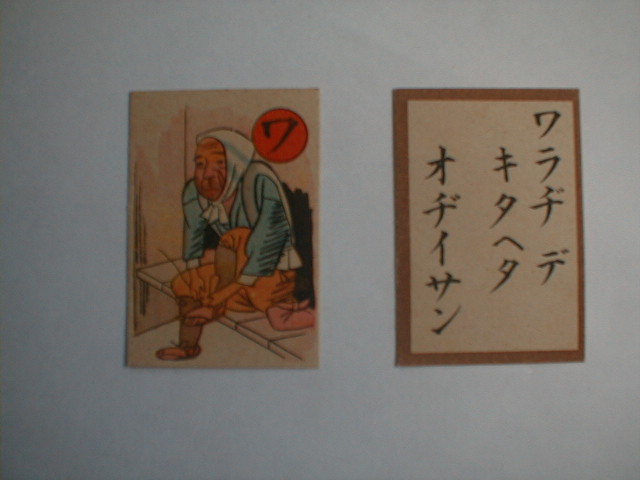 ワ
ワラヂ デ
キタヘタ
オヂイサン